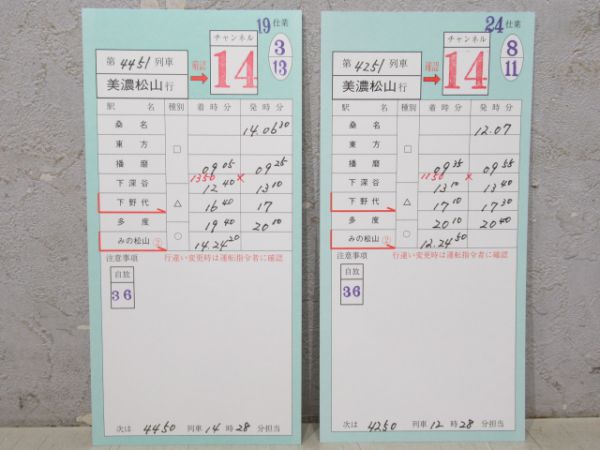 19 仕業
3
13
第 4451 列車
美濃松山 行
確認
チャンネル
14
駅 名 種別 着時分 発時分
桑 名 14.06 20
東 方 □
播 磨 09 05 09 25
1350 ×
下深谷 12 40 13 10
下野代 △ 16 40 17
多 度 19 40 20 00
みの松山 ○ 14.24 20
注意事項 行違い変更時は運転指令者に確認
自放
36
次は 4450 列車 14 時 28 分担当
24 仕業
8
11
第 4251 列車
美濃松山 行
確認
チャンネル
14
駅 名 種別 着時分 発時分
桑 名 12.07
東 方 □
播 磨 09 35 09 55
1150 ×
下深谷 13 10 13 40
下野代 △ 17 10 17 30
多 度 20 10 20 40
みの松山 ○ 12.24 50
注意事項 行違い変更時は運転指令者に確認
自放
36
次は 4250 列車 12 時 28 分担当